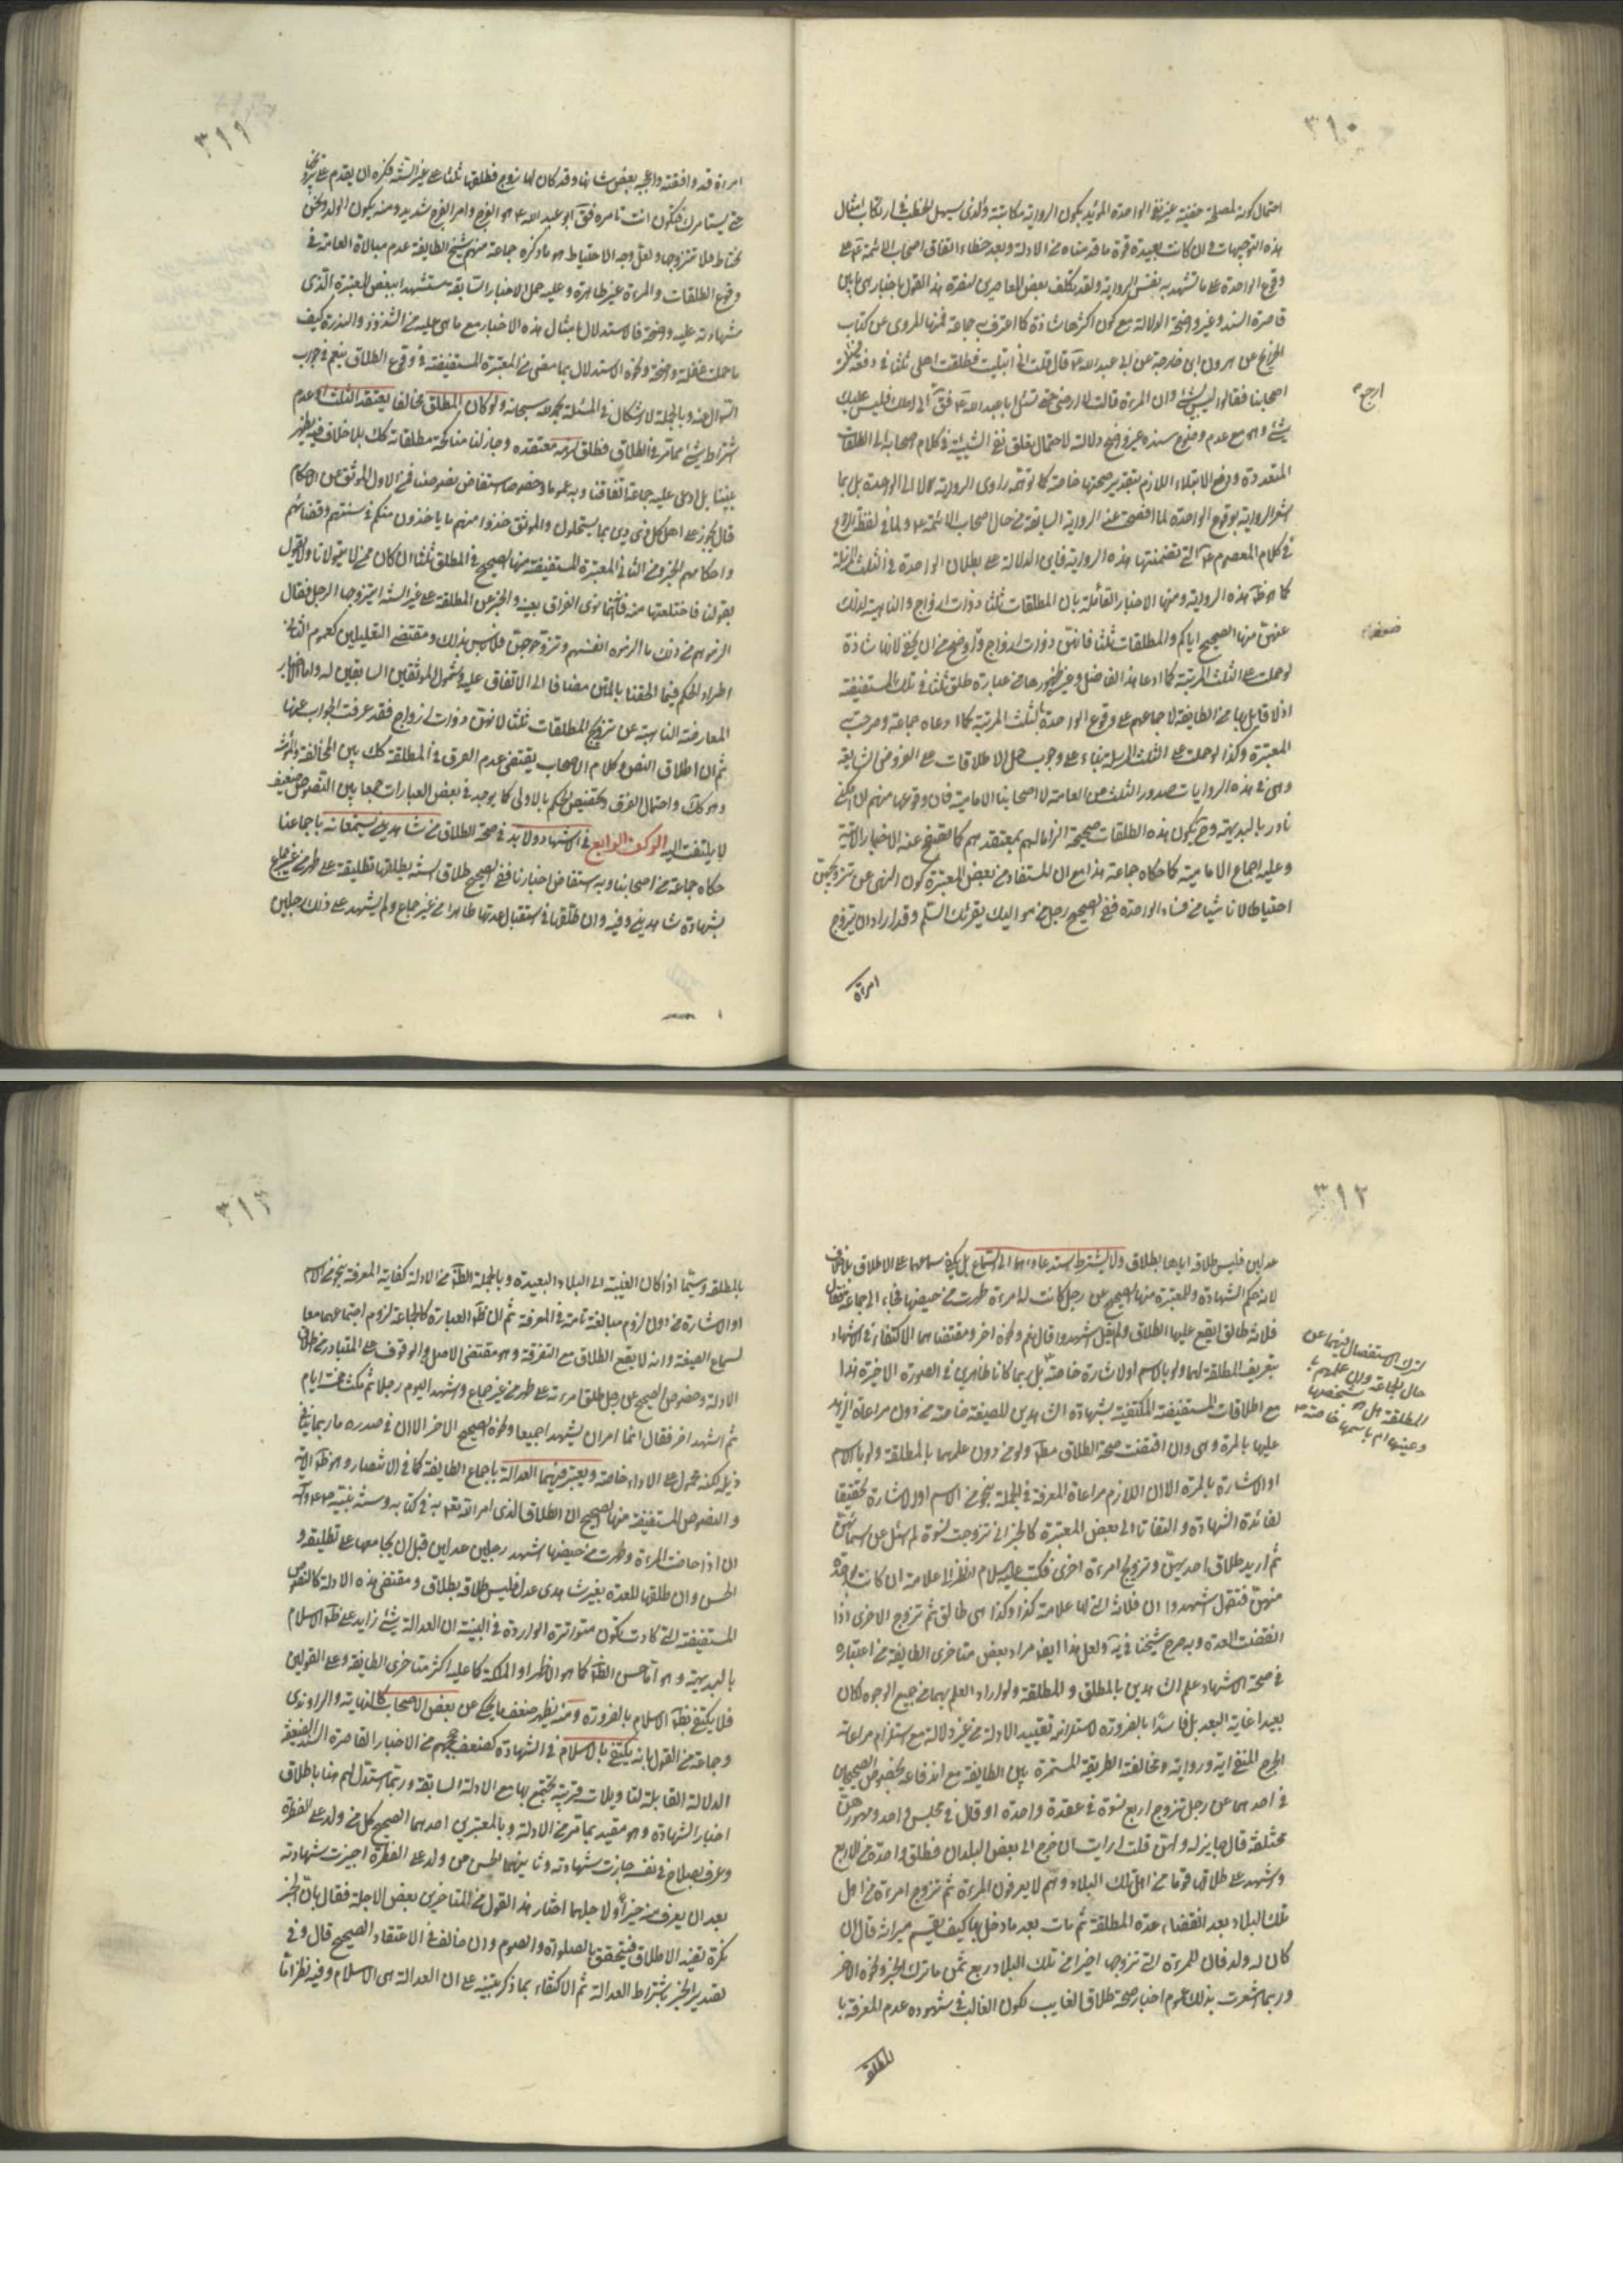 ٣١٠
احتمال كونه لمصلحة خفية غير نفي الواحدة المؤيد بكون الرواية مكاتبة والذي يسهل الخطب في ارتكاب امثال
هذه التوجيهات وان كانت بعيدة قوة ما قدمناه من الادلة وبعد خطاء اتفاق اصحاب الائمة ع على
وقوع الواحدة على ما تشهد به نفس الرواية ولقد تكلف بعض المعاصرين لنصرة هذا القول باخبار هي ما بين
قاصرة السند وغير واضحة الدلالة مع كون اكثرها شاذة كما اعترف به جماعة فمنها المروي عن كتاب
الخرايج عن هرون ابن خارجة عن ابي عبد الله ع قال قلت اني ابتليت فطلقت اهلي ثلثا في دفعة فسئلت
اصحابنا فقالوا ليس بشئ وان المرءة قالت لا ارضى حتى تسئل ابا عبد الله ع فق ارجع الى اهلك فليس عليك
شئ وهو مع عدم وضوح سنده غير واضح دلالة لاحتمال تعلق نفي الشيئية في كلام اصحابه الى الطلقات
المتعددة ورفع الابتلاء اللازم بتقدير صحتها خاصة كما توهمه راوي الرواية لا الى الواحدة بل ربما
اشعر الرواية بوقوع الواحدة لما افصحت عنه الرواية السابقة من حال اصحاب الائمة ع ولما في لفظ الرجوع
في كلام المعصوم ع التي تضمنتها هذه الرواية فاين الدلالة على بطلان الواحدة في الثلث المرسلة
كما هو ظ هذه الرواية ومنها الاخبار القائلة بان المطلقات ثلثا ذوات ازواج والناهية لذلك
عنهن منها الصحيح اياكم والمطلقات ثلثا فانهن ذوات ازواج و اوضح من ان يخفى لانها شاذة
لو حملت على الثلث المرتبة كما ادعا هذا الفاضل وغير ظهورها من عبارة طلق ثلثا في تلك المستفيضة
اذ لا قائل بها من الطايفة لاجماعهم على وقوع الواحدة بالثلث المرتبة كما ادعاه جماعة وصرحت به
المعتبرة وكذا لو حملت على الثلث المرسلة بناء على وجوب حمل الاطلاقات على الفروض الشايعة
وهي في هذه الروايات صدور الثلث من العامة لا اصحابنا الامامية فان وقوعها منهم ان امكن
نادر بالبديهة وح تكون هذه الطلقات صحيحة الزاما لهم بمعتقدهم كما تفصح عنه الاخبار الاتية
وعليه اجماع الامامية كما حكاه جماعة هذا مع ان المستفاد من بعض المعتبرة كون النهي عن تزويجهن
احتياطا لا ناشيا من فساد الواحدة ففي الصحيح رجل من مواليك يقرئك السلم وقد اراد ان يتزوج
امرءة
ارجع
ضعفها
٣١١
امرءة قد وافقته واعجبه بعض شانها وقد كان لها زوج فطلقها ثلثا على غير السنة وكره ان يقدم على تزويجها
حتى يستامرك فتكون انت تامره فق ابو عبد الله ع هو الفرج وامر الفرج شديد ومنه يكون الولد ونحن
نحتاط فلا تتزوجها ولعل وجه الاحتياط هو ما ذكره جماعة منهم شيخ الطايفة عدم مبالاة العامة في
وقوع الطلقات والمرءة غير طاهرة وعليه حمل الاخبار السابقة مستشهدا ببعض المعتبرة الذي
شهادته عليه واضحة فالاستدلال بامثال هذه الاخبار مع ما هي عليه من الشذوذ والندرة كيف
ما حملت غفلة واضحة ونحوه الاستدلال بما مضى من المعتبرة المستفيضة في وقوع الطلاق بنعم في جواب
السؤال عنه وبالجملة لا اشكال في المسئلة بحمد الله سبحانه ولو كان المطلق مخالفا يعتقد الثلث او عدم
اشتراط شئ مما تر في الطلاق فطلق لزمه معتقده وجاز لنا مناكحة مطلقاته كك بلا خلاف فيه يظهر
بيننا بل ادعى عليه جماعة اتفاقنا وبه عموما وخصوصا استفاض نصوصنا فمن الاول الموثق عن الاحكام
قال يجوز على اهل كل ذي دين بما يستحلون والموثق خذوا منهم ما ياخذون منكم في سنتهم وقضائهم
واحكامهم الخبر ومن الثاني المعتبرة المستفيضة منها الصحيح في المطلق ثلثا ان كان ممن لا يتولانا ولا يقول
بقولنا فاختلعها منه فانه انما نوى الفراق بعينه والخبر عن المطلقة على غير السنة ايتزوجها الرجل فقال
الزموهم من ذلك ما الزموه انفسهم وتزوجوهن فلا باس بذلك ومقتضى التعليلين كعموم الثاني
اطراد الحكم فيما الحقنا بالمتن مضافا الى الاتفاق عليه وشمول الموثقين السابقين له واما الاخبار
المعارضة الناهية عن تزويج المطلقات ثلثا لانهن ذوات ازواج فقد عرفت الجواب عنها
ثم ان اطلاق النص وكلام الاصحاب يقتضي عدم الفرق في المطلقة كك بين المخالفة والمؤمنة
وهو كك واحتمال الفرق وتخصيص الحكم بالاولى كما يوجد في بعض العبارات جمعا بين النصوص ضعيف
لا يلتفت اليه الركن الرابع في الاشهاد ولا بد في صحة الطلاق من شاهدين يسمعانه باجماعنا
حكاه جماعة من اصحابنا وبه استفاض اخبارنا ففي الصحيح طلاق السنة يطلقها تطليقة على طهر من غير جماع
بشهادة شاهدين وفيه وان طلقها في استقبال عدتها طاهرا من غير جماع ولم يشهد على ذلك رجلين
٣١٢
عدلين فليس طلاقه اياها بطلاق ولا يشترط استدعاءهما الى السماع بل يكفي سماعهما على الاطلاق بلا خلاف
لانه حكم الشهادة وللمعتبرة منها الصحيح عن رجل كانت له امرءة طهرت من حيضها فجاء الى جماعة فقال
فلانة طالق ايقع عليها الطلاق ولم يقل اشهدوا قال نعم ونحوه اخر ومقتضاهما الاكتفاء في الاشهاد
بتعريف المطلقة لهما ولو بالاسم او الاشارة خاصة بل ربما كانا ظاهرين في الصورة الاخيرة هذا
مع اطلاقات المستفيضة المكتفية بشهادة الشاهدين للصيغة خاصة من دون مراعاة الزايد
عليها بالمرة وهي وان اقتضت صحة الطلاق مط ولو من دون علمهما بالمطلقة ولو بالاسم
او الاشارة بالمرة الا ان اللازم مراعاة المعرفة في الجملة بنحو من الاسم او الاشارة تحقيقا
لفائدة الشهادة والتفاتا الى بعض المعتبرة كالخبر اني تزوجت نسوة لم اسئل عن اسمائهن
ثم اريد طلاق احديهن وتزويج امرءة اخرى فكتب عليه السلام انظر الى علامة ان كانت بواحدة
منهن فتقول اشهدوا ان فلانة التي لها علامة كذا وكذا هي طالق ثم تزوج الاخرى اذا
انقضت العدة وبه صرح شيخنا في يه ولعل هذا ايضا مراد بعض متاخري الطايفة من اعتباره
في صحة الاشهاد علم الشاهدين بالمطلق والمطلقة ولو اراد العلم بهما من جميع الوجوه لكان
بعيدا غاية البعد بل فاسدا بالضرورة لاستلزامه تقييد الادلة من غير دلالة مع استلزام مراعاته
الحرج المنفي اية ورواية ومخالفة الطريقة المستمرة بين الطايفة مع اندفاعه بخصوص الصحيحين
في احدهما عن رجل تزوج اربع نسوة في عقدة واحدة او قال في مجلس واحد ومهورهن
مختلفة قال جايز له ولهن قلت ارايت ان خرج الى بعض البلدان فطلق واحدة من الاربع
واشهد على طلاقها قوما من اهل تلك البلاد وهم لا يعرفون المرءة ثم تزوج امرءة من اهل
تلك البلاد بعد انقضاء عدة المطلقة ثم مات بعد ما دخل بها كيف يقسم ميراثه قال ان
كان له ولد فان للمرءة التي تزوجها اخيرا من تلك البلاد ربع ثمن ما ترك الخبر ونحوه الاخر
وربما اشعرت بذلك عموم اخبار صحة طلاق الغايب لكون الغالب في شهوده عدم المعرفة با
للمطلقة
لترك الاستفصال فيهما عن
حال الجماعة وان علمهم با
المطلقة هل بشخصها
وعينها ام باسمها خاصة
٣١٣
بالمطلقة وسيما اذا كان الغيبة الى البلاد البعيدة وبالجملة الظ من الادلة كفاية المعرفة بنحو من الاسم
او الاشارة من دون لزوم مبالغة تامة في المعرفة ثم ان ظ العبارة كالجماعة لزوم اجتماعهما معا
لسماع الصيغة وانه لا يقع الطلاق مع التفرقة وهو مقتضى الاصل والوقوف على المتبادر من اطلاق
الادلة وخصوص الصحيح عن رجل طلق امرءته على طهر من غير جماع واشهد اليوم رجلا ثم مكث خمسة ايام
ثم اشهد اخر فقال انما امر ان يشهدا جميعا ونحوه الصحيح الاخر الا ان في صدره ما ربما ينافي
ذيله لكنه محمول على الاداء خاصة ويعتبر فيهما العدالة باجماع الطايفة كما في الانتصار وهو ظ الاية
والنصوص المستفيضة منها الصحيح ان الطلاق الذي امر الله تع به في كتابه وسنة نبيه ص
ان اذا حاضت المرءة وطهرت من حيضها اشهد رجلين عدلين قبل ان يجامعها على تطليقه و
الحسن وان طلقها للعدة بغير شاهدي عدل فليس طلاقه بطلاق ومقتضى هذه الادلة كالنصوص
المستفيضة التي كادت تكون متواترة الواردة في البينة ان العدالة شئ زايد على ظ الاسلام
بالبديهة وهو اما حسن الظ كما هو الاظهر او الملكة كما عليه اكثر متاخري الطايفة وعلى القولين
فلا يكتفى بظ الاسلام بالضرورة ومنه يظهر ضعف ما يحكى عن بعض الاصحاب كالنهاية والراوندي
وجماعة من القول بانه يكتفى بالاسلام في الشهادة كضعف حججهم من الاخبار القاصرة السند الضعيفة
الدلالة القابلة لتاويلات قريبة يجتمع بها مع الادلة السابقة وربما يستدل لهم هنا باطلاق
اخبار الشهادة وهو مقيد بما تر من الادلة وبالمعتبرين احدهما الصحيح كل من ولد على الفطرة
وعرف بصلاح في نفسه جازت شهادته وثانيهما الحسن من ولد على الفطرة اجيزت شهادته
بعد ان يعرف منه خيرا ولاجلهما اختار هذا القول من المتاخرين بعض الاجلة فقال بان الخبر
نكرة تفيد الاطلاق فيتحقق بالصلوة والصوم وان خالف في الاعتقاد الصحيح قال وفي
تصدير الخبر باشتراط العدالة ثم الاكتفاء بما ذكر تنبيه على ان العدالة هي الاسلام وفيه نظر اما